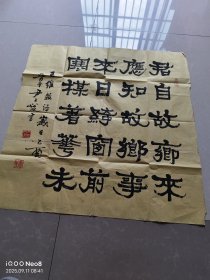 君自故鄉來
應知故鄉事
來日綺窗前
寒楳著華未
王維雜詩
2025.09.11 08:41